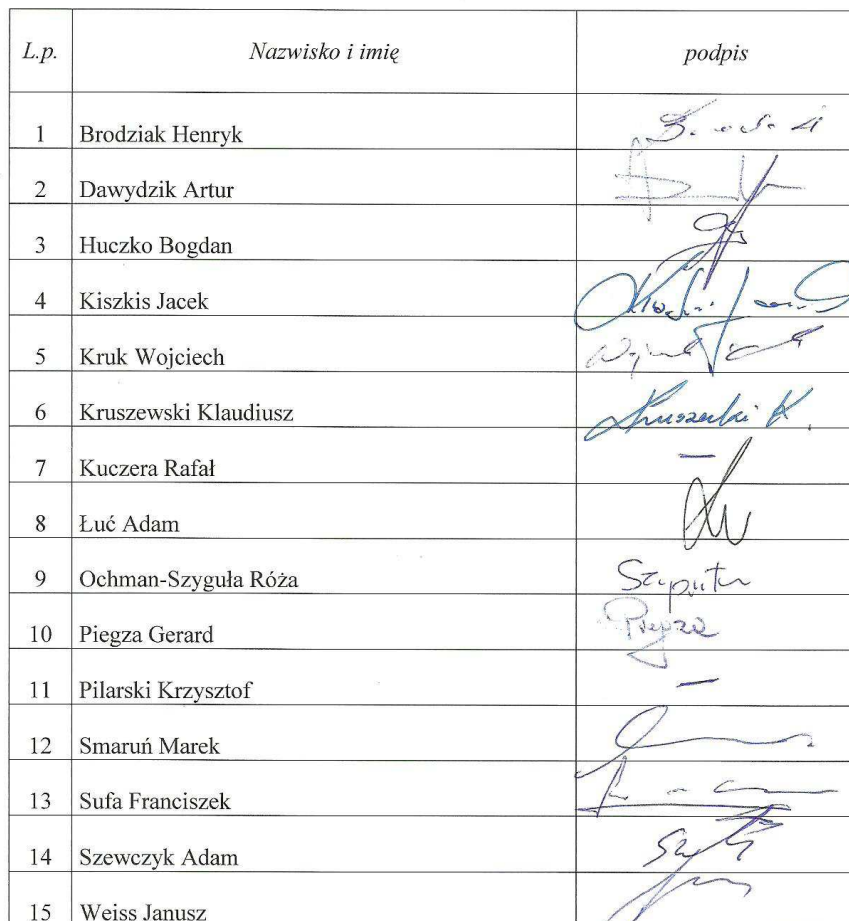 L.p. Nazwisko i imię podpis
1 Brodziak Henryk
2 Dawydzik Artur
3 Huczko Bogdan
4 Kiszkis Jacek
5 Kruk Wojciech
6 Kruszewski Klaudiusz Kruszewski K.
7 Kuczera Rafał —
8 Łuć Adam
9 Ochman-Szyguła Róża
10 Piegza Gerard Piegza
11 Pilarski Krzysztof —
12 Smaruń Marek
13 Sufa Franciszek
14 Szewczyk Adam
15 Weiss Janusz